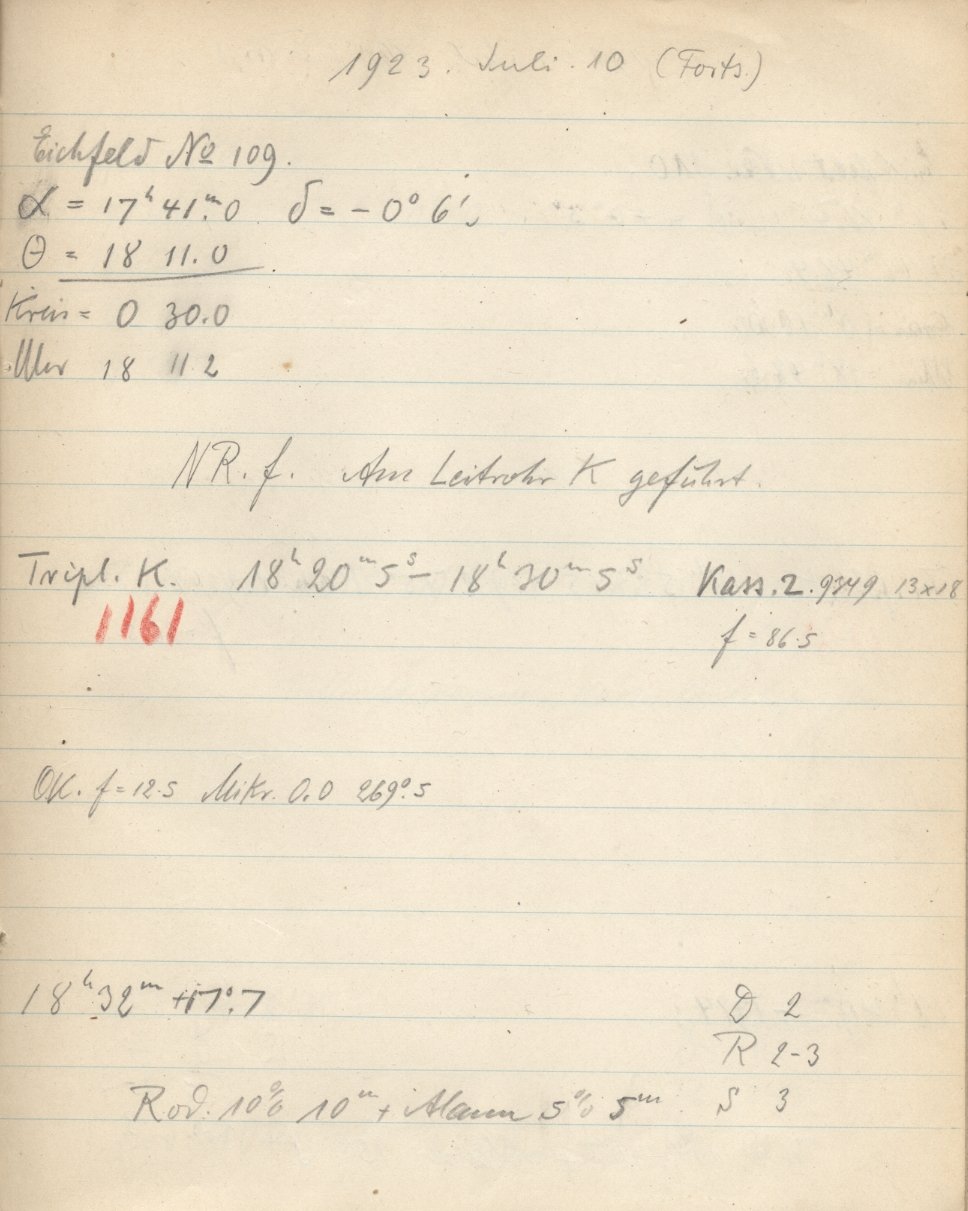 1923. Juli. 10 (Forts.)
Eichfeld No 109.
α = 17ʰ 41.ᵐ0 δ = - 0° 6'
Θ = 18 11.0
Kreis = 0 30.0
Uhr 18 11 2
NR. f. Am Leitrohr K geführt.
Tripl. K. 18ʰ 20ᵐ 5ˢ - 18ʰ 30ᵐ 5ˢ Kass. 2. 9349 13x18
1161
f = 86.5
OK. f = 12.5 Mikr. 0.0 269°.5
18ʰ 32ᵐ +17°.7
D 2
R 2-3
Rod. 10% 10ᵐ + Alaun 5% 5ᵐ S 3